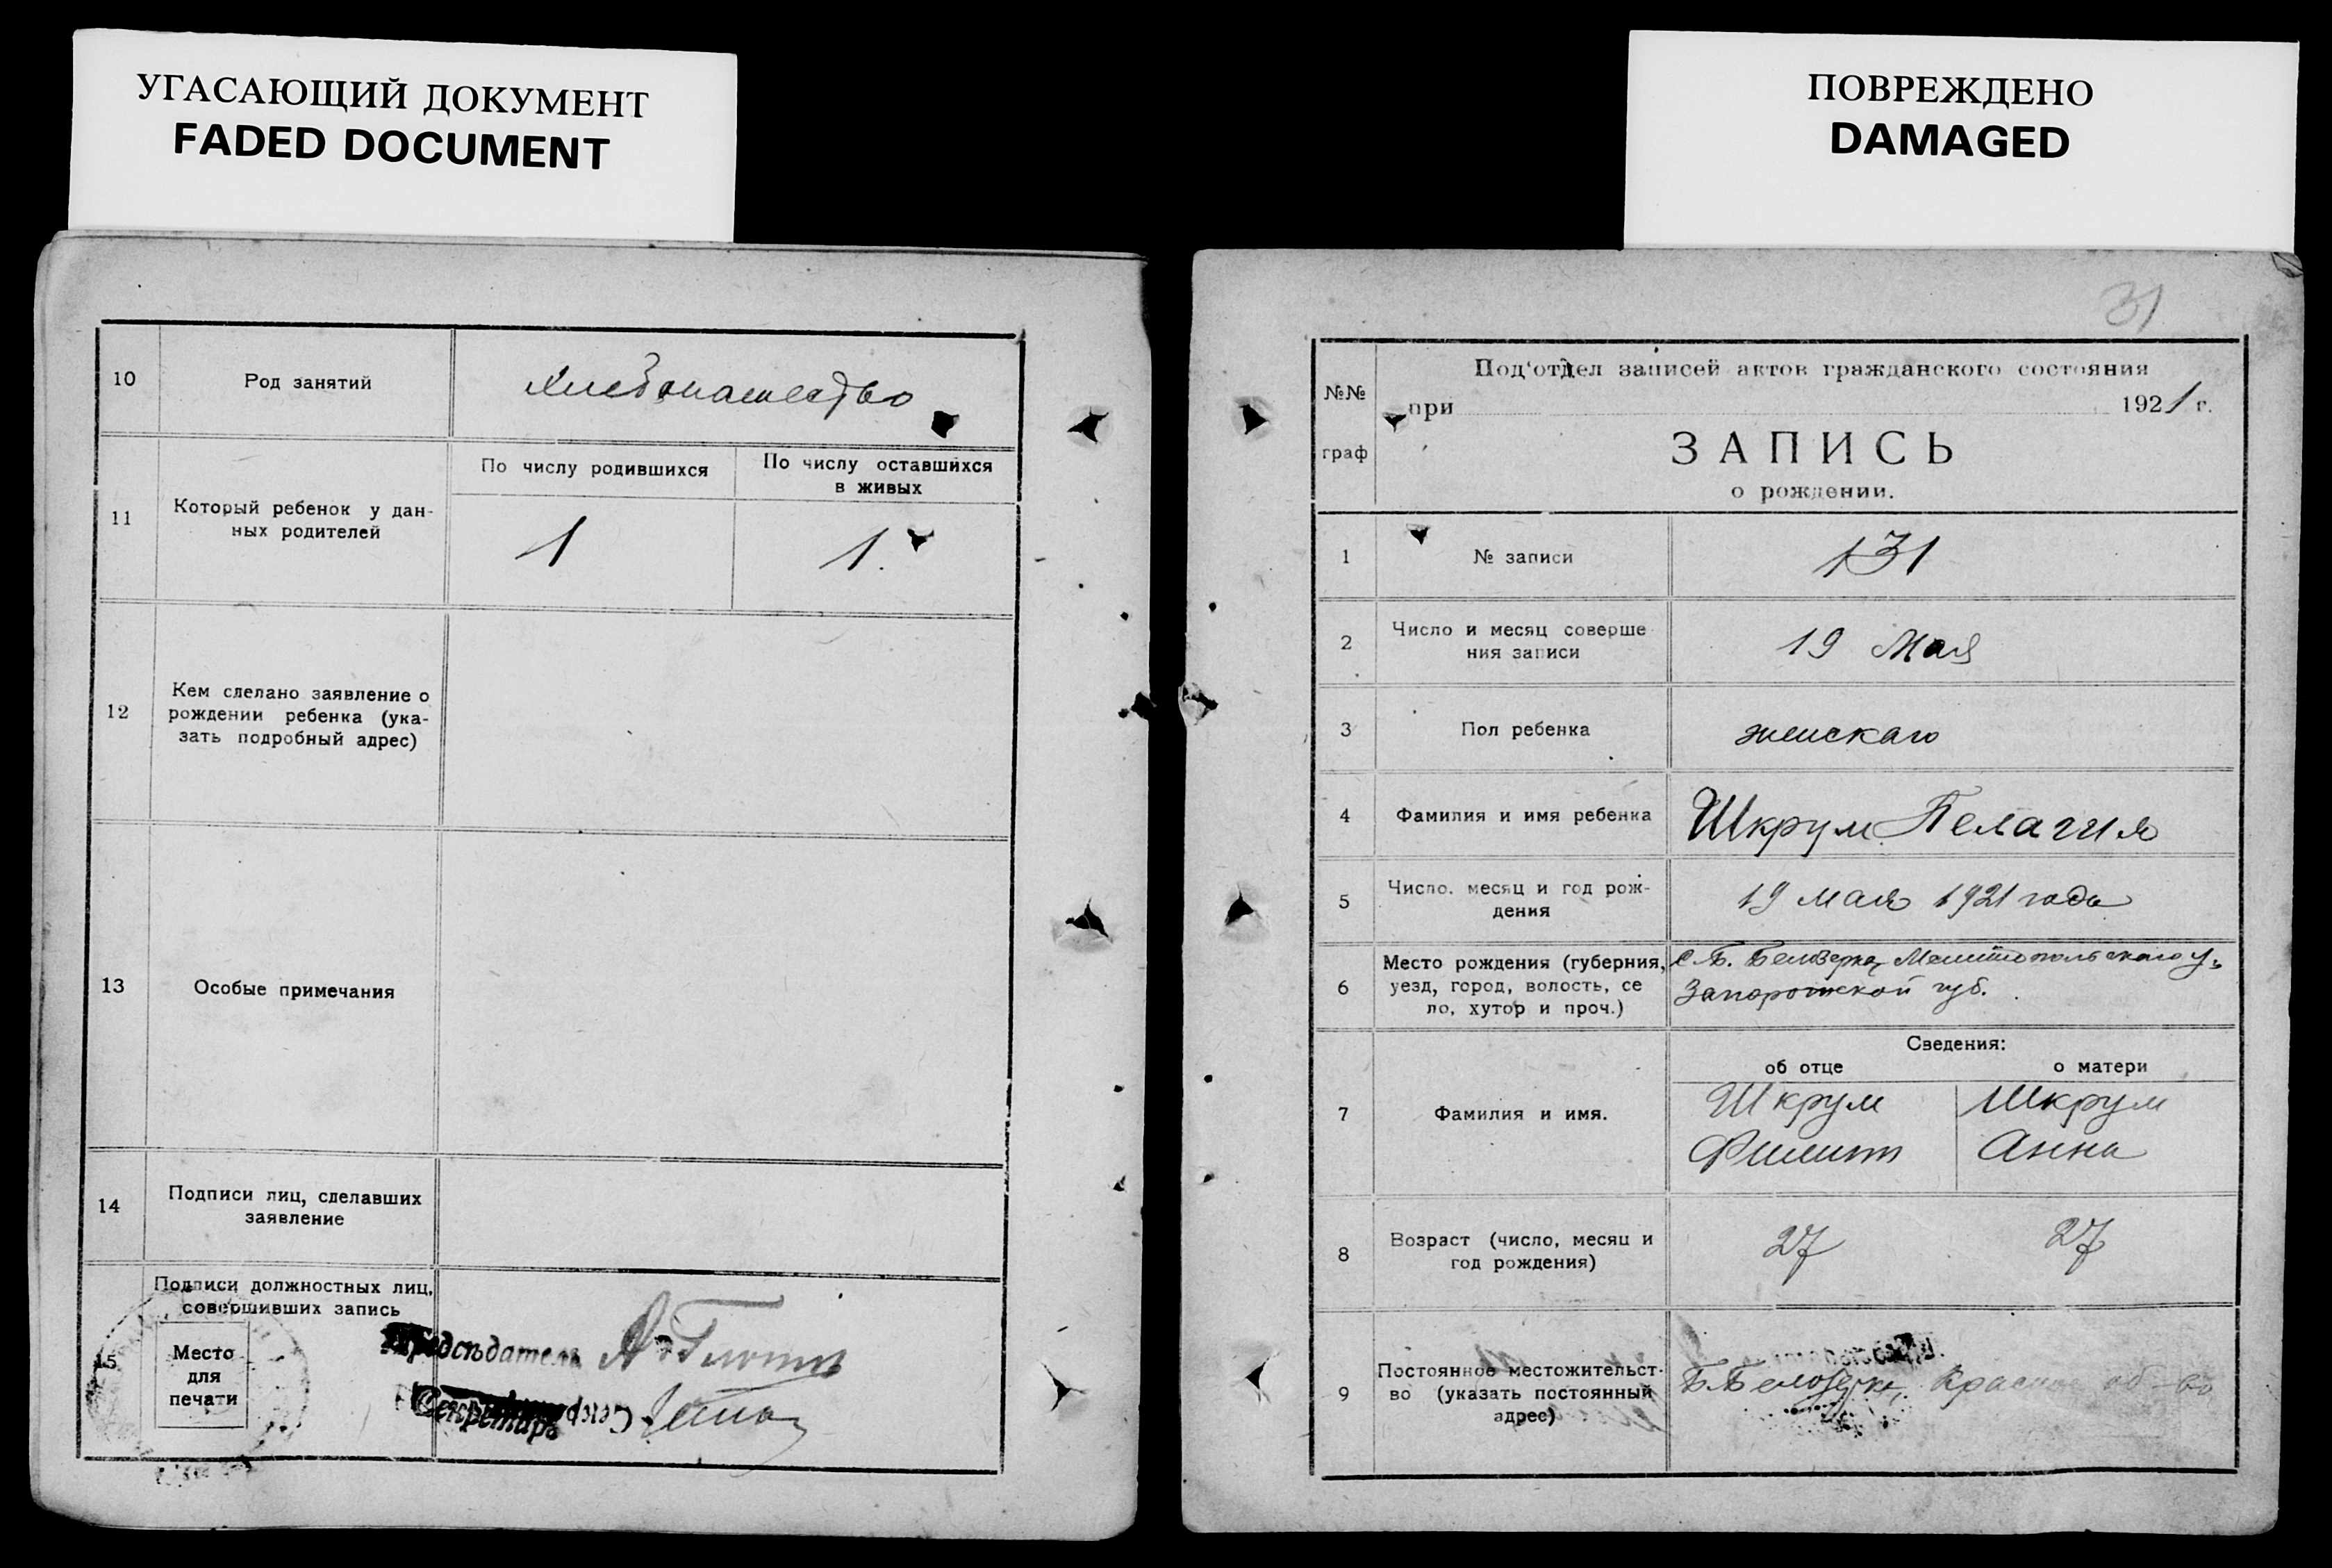 УГАСАЮЩИЙ ДОКУМЕНТ
FADED DOCUMENT
10
Род занятий
Хлебопашество
11
Который ребенок у дан-
ных родителей
По числу родившихся
По числу оставшихся
в живых
1
1.
12
Кем сделано заявление о
рождении ребенка (ука-
зать подробный адрес)
13
Особые примечания
14
Подписи лиц, сделавших
заявление
15
Подписи должностных лиц,
совершивших запись
Место
для
печати
Председатель
Секретарь
ПОВРЕЖДЕНО
DAMAGED
31
№№
граф
Под'отдел записей актов гражданского состояния
при 1921 г.
ЗАПИСЬ
о рождении.
1
№ записи
131
2
Число и месяц соверше
ния записи
19 Мая
3
Пол ребенка
женскаго
4
Фамилия и имя ребенка
Шкрум Пелагия
5
Число. месяц и год рож-
дения
19 мая 1921 года
6
Место рождения (губерния,
уезд, город, волость, се
ло, хутор и проч.)
с. Б. Белозерка, Мелитопольскаго у.
Запорожской губ.
Сведения:
об отце
о матери
7
Фамилия и имя.
Шкрум
Филипп
Шкрум
Анна
8
Возраст (число, месяц и
год рождения)
27
27
9
Постоянное местожительст-
во (указать постоянный
адрес)
Б. Белозерка,